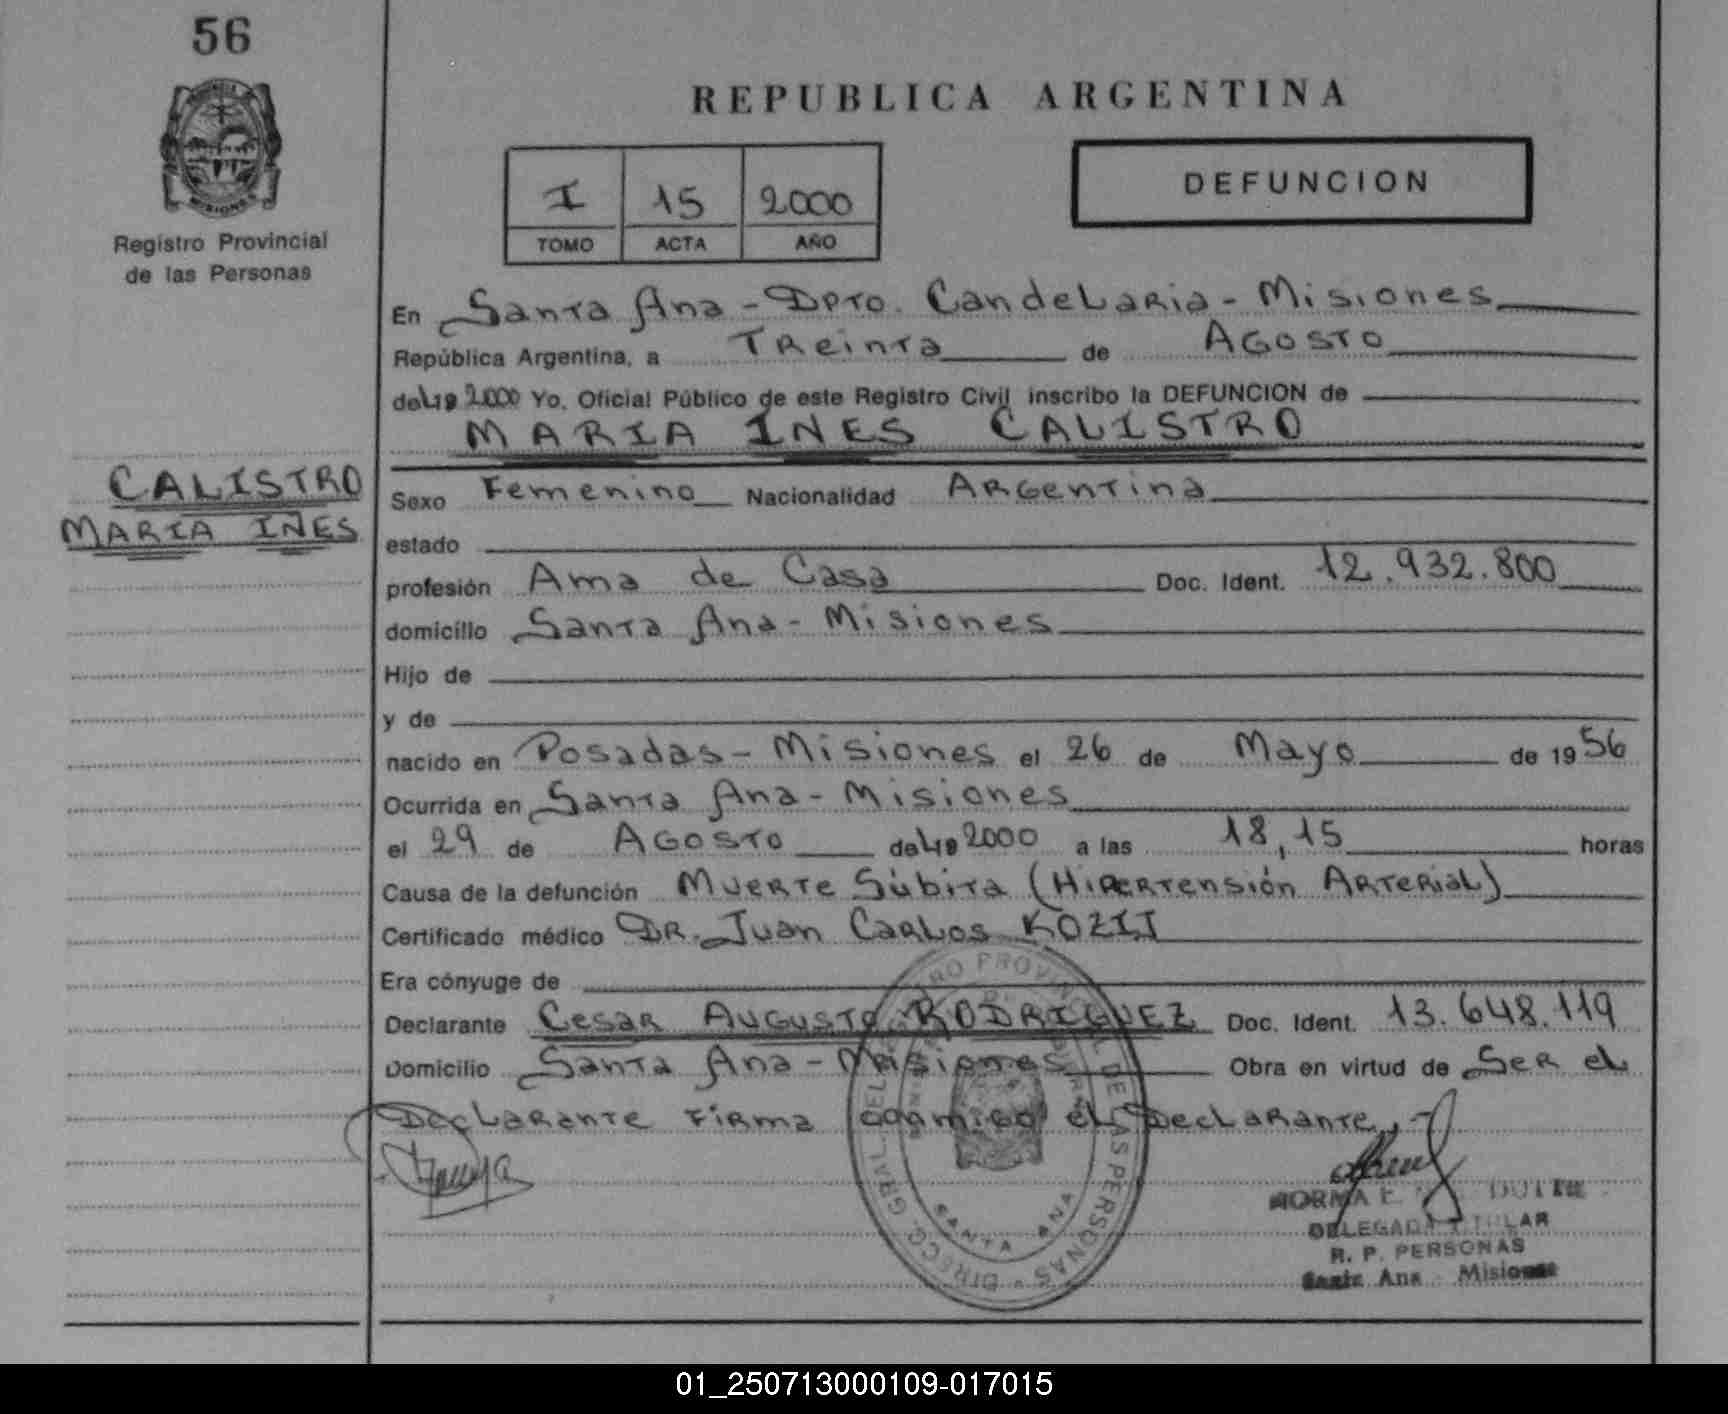 56
REPUBLICA ARGENTINA
I 15 2000
TOMO ACTA AÑO
DEFUNCION
MISIONES
Registro Provincial
de las Personas
En Santa Ana - Dpto. Candelaria - Misiones
República Argentina, a Treinta de Agosto
del 2000 Yo, Oficial Público de este Registro Civil inscribo la DEFUNCION de
MARIA INES CALISTRO
CALISTRO
MARIA INES
Sexo Femenino Nacionalidad Argentina
estado
profesión Ama de Casa Doc. Ident. 12.932.800
domicilio Santa Ana - Misiones
Hijo de
y de
nacido en Posadas - Misiones el 26 de Mayo de 1956
Ocurrida en Santa Ana - Misiones
el 29 de Agosto del 2000 a las 18,15 horas
Causa de la defunción Muerte Súbita (Hipertensión Arterial)
Certificado médico Dr. Juan Carlos KOZIJ
Era cónyuge de
Declarante Cesar Augusto RODRIGUEZ Doc. Ident. 13.648.119
Domicilio Santa Ana - Misiones Obra en virtud de Ser el
Declarante Firma conmigo el Declarante.-
NORMA E.
DELEGADA TITULAR
R. P. PERSONAS
Santa Ana - Misiones
DIRECC. GRAL. DEL REGISTRO PROVINCIAL DE LAS PERSONAS
SANTA ANA
01_250713000109-017015